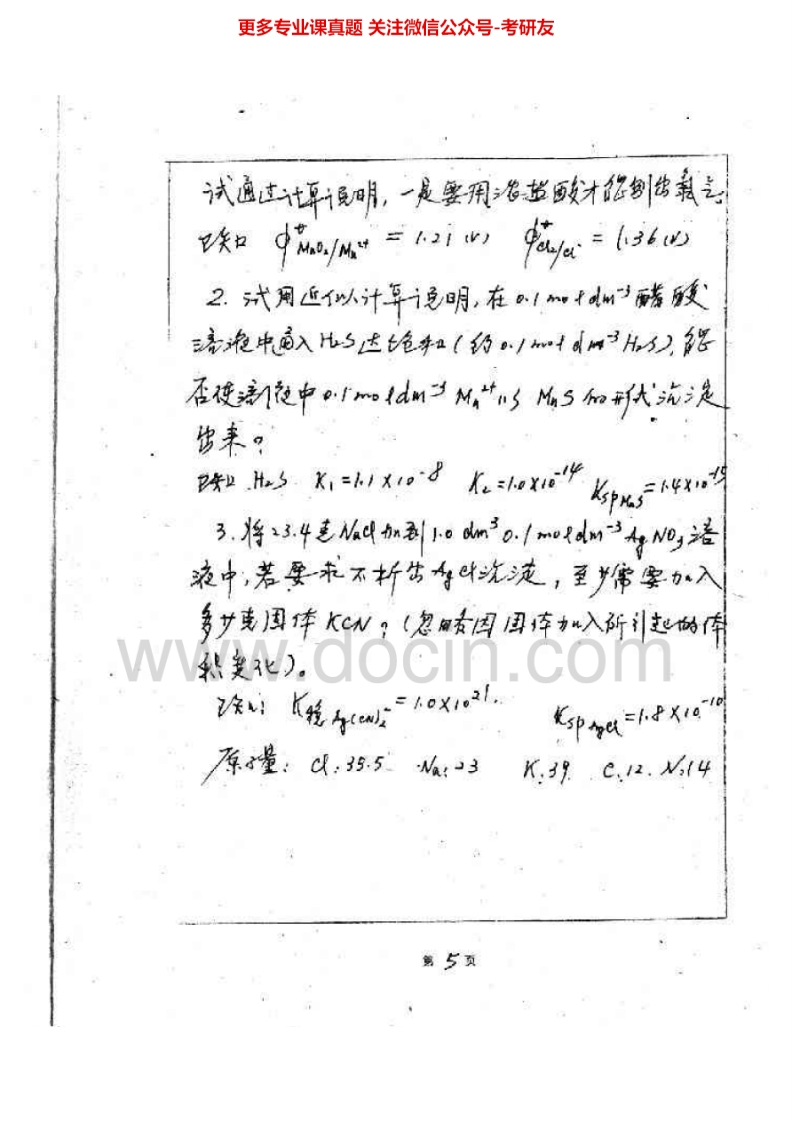 更多专业课真题 关注微信公众号-考研友
试通过计算说明，一定要用浓盐酸才能制出氯气。
已知 φ°MnO₂/Mn²⁺ = 1.21 (V) φ°Cl₂/Cl⁻ = 1.36 (V)
2. 试用近似计算说明，在 0.1 mol dm⁻³ 醋酸
溶液中通入 H₂S 达饱和 (约 0.1 mol dm⁻³ H₂S)，能
否使溶液中 0.1 mol dm⁻³ Mn²⁺ 以 MnS 的形式沉淀
出来？
已知 H₂S K₁=1.1×10⁻⁸ K₂=1.0×10⁻¹⁴ Ksp MnS=1.4×10⁻¹⁵
3. 将 23.4 克 NaCl 加到 1.0 dm³ 0.1 mol dm⁻³ AgNO₃ 溶
液中，若要求不析出 AgCl 沉淀，至少需要加入
多少克固体 KCN？(忽略因固体加入所引起的体
积变化)。
www.docin.com
已知： K稳 Ag(CN)₂⁻ = 1.0×10²¹. Ksp AgCl = 1.8×10⁻¹⁰
原子量： Cl：35.5 Na：23 K：39 C：12. N：14
第 5 页